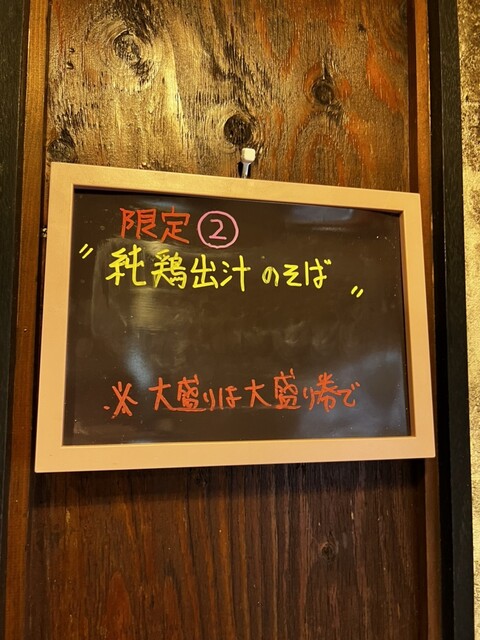 限定②
〃純鶏出汁のそば〃
※大盛りは大盛り券で